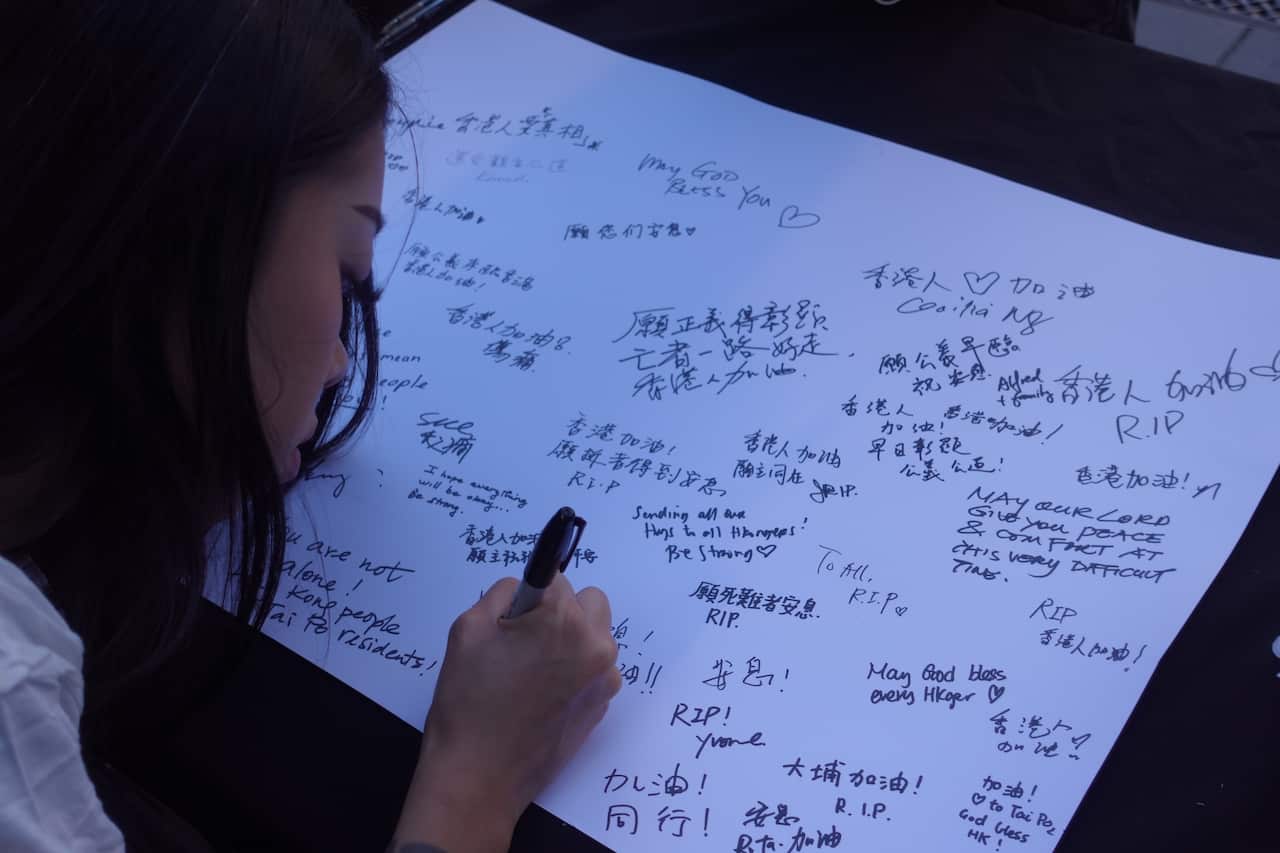 香港人要真相
May God
Bless You ♡
香港人加油♥
願您们安息♡
香港人加油!
香港人♡加油
Cecilia Ng
香港人加油
願正義得彰顯
亡者一路好走.
香港人加油.
願公義早臨。
祝安息
Alfred
+ family
香港人
R.I.P
mean
people
Sue
香港加油!
願逝者得到安息
R.I.P
香港人加油
願主同在
R.I.P.
香港人
加油!
早日彰顯
公義公道!
香港加油!
香港加油!
I hope everything
will be okay...
Be strong.
MAY OUR LORD
GIVE YOU PEACE
& COMFORT AT
THIS VERY DIFFICULT
TIME.
Sending all our
Hugs to all Hkongers!
Be Strong♡
香港人加
願主
To All,
R.I.P.♡
are not
alone!
Kong people
Tai Po residents!
願死難者安息.
RIP.
RIP
香港人加油!
安息!
May God bless
every HKger ♡
RIP!
Yvonne
香港人
加油!
加油!
同行!
大埔加油!
R.I.P.
安息
Rita.加油
加油!
♡ to Tai Po
God bless
HK!